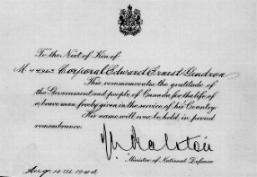 To the Next of Kin of
Corporal Edward Ernest Gendron
This commemorates the gratitude of
the Government and people of Canada for the life of
a brave man freely given in the service of his Country.
His name will ever be held in proud
remembrance.
J. L. Ralston
Minister of National Defence